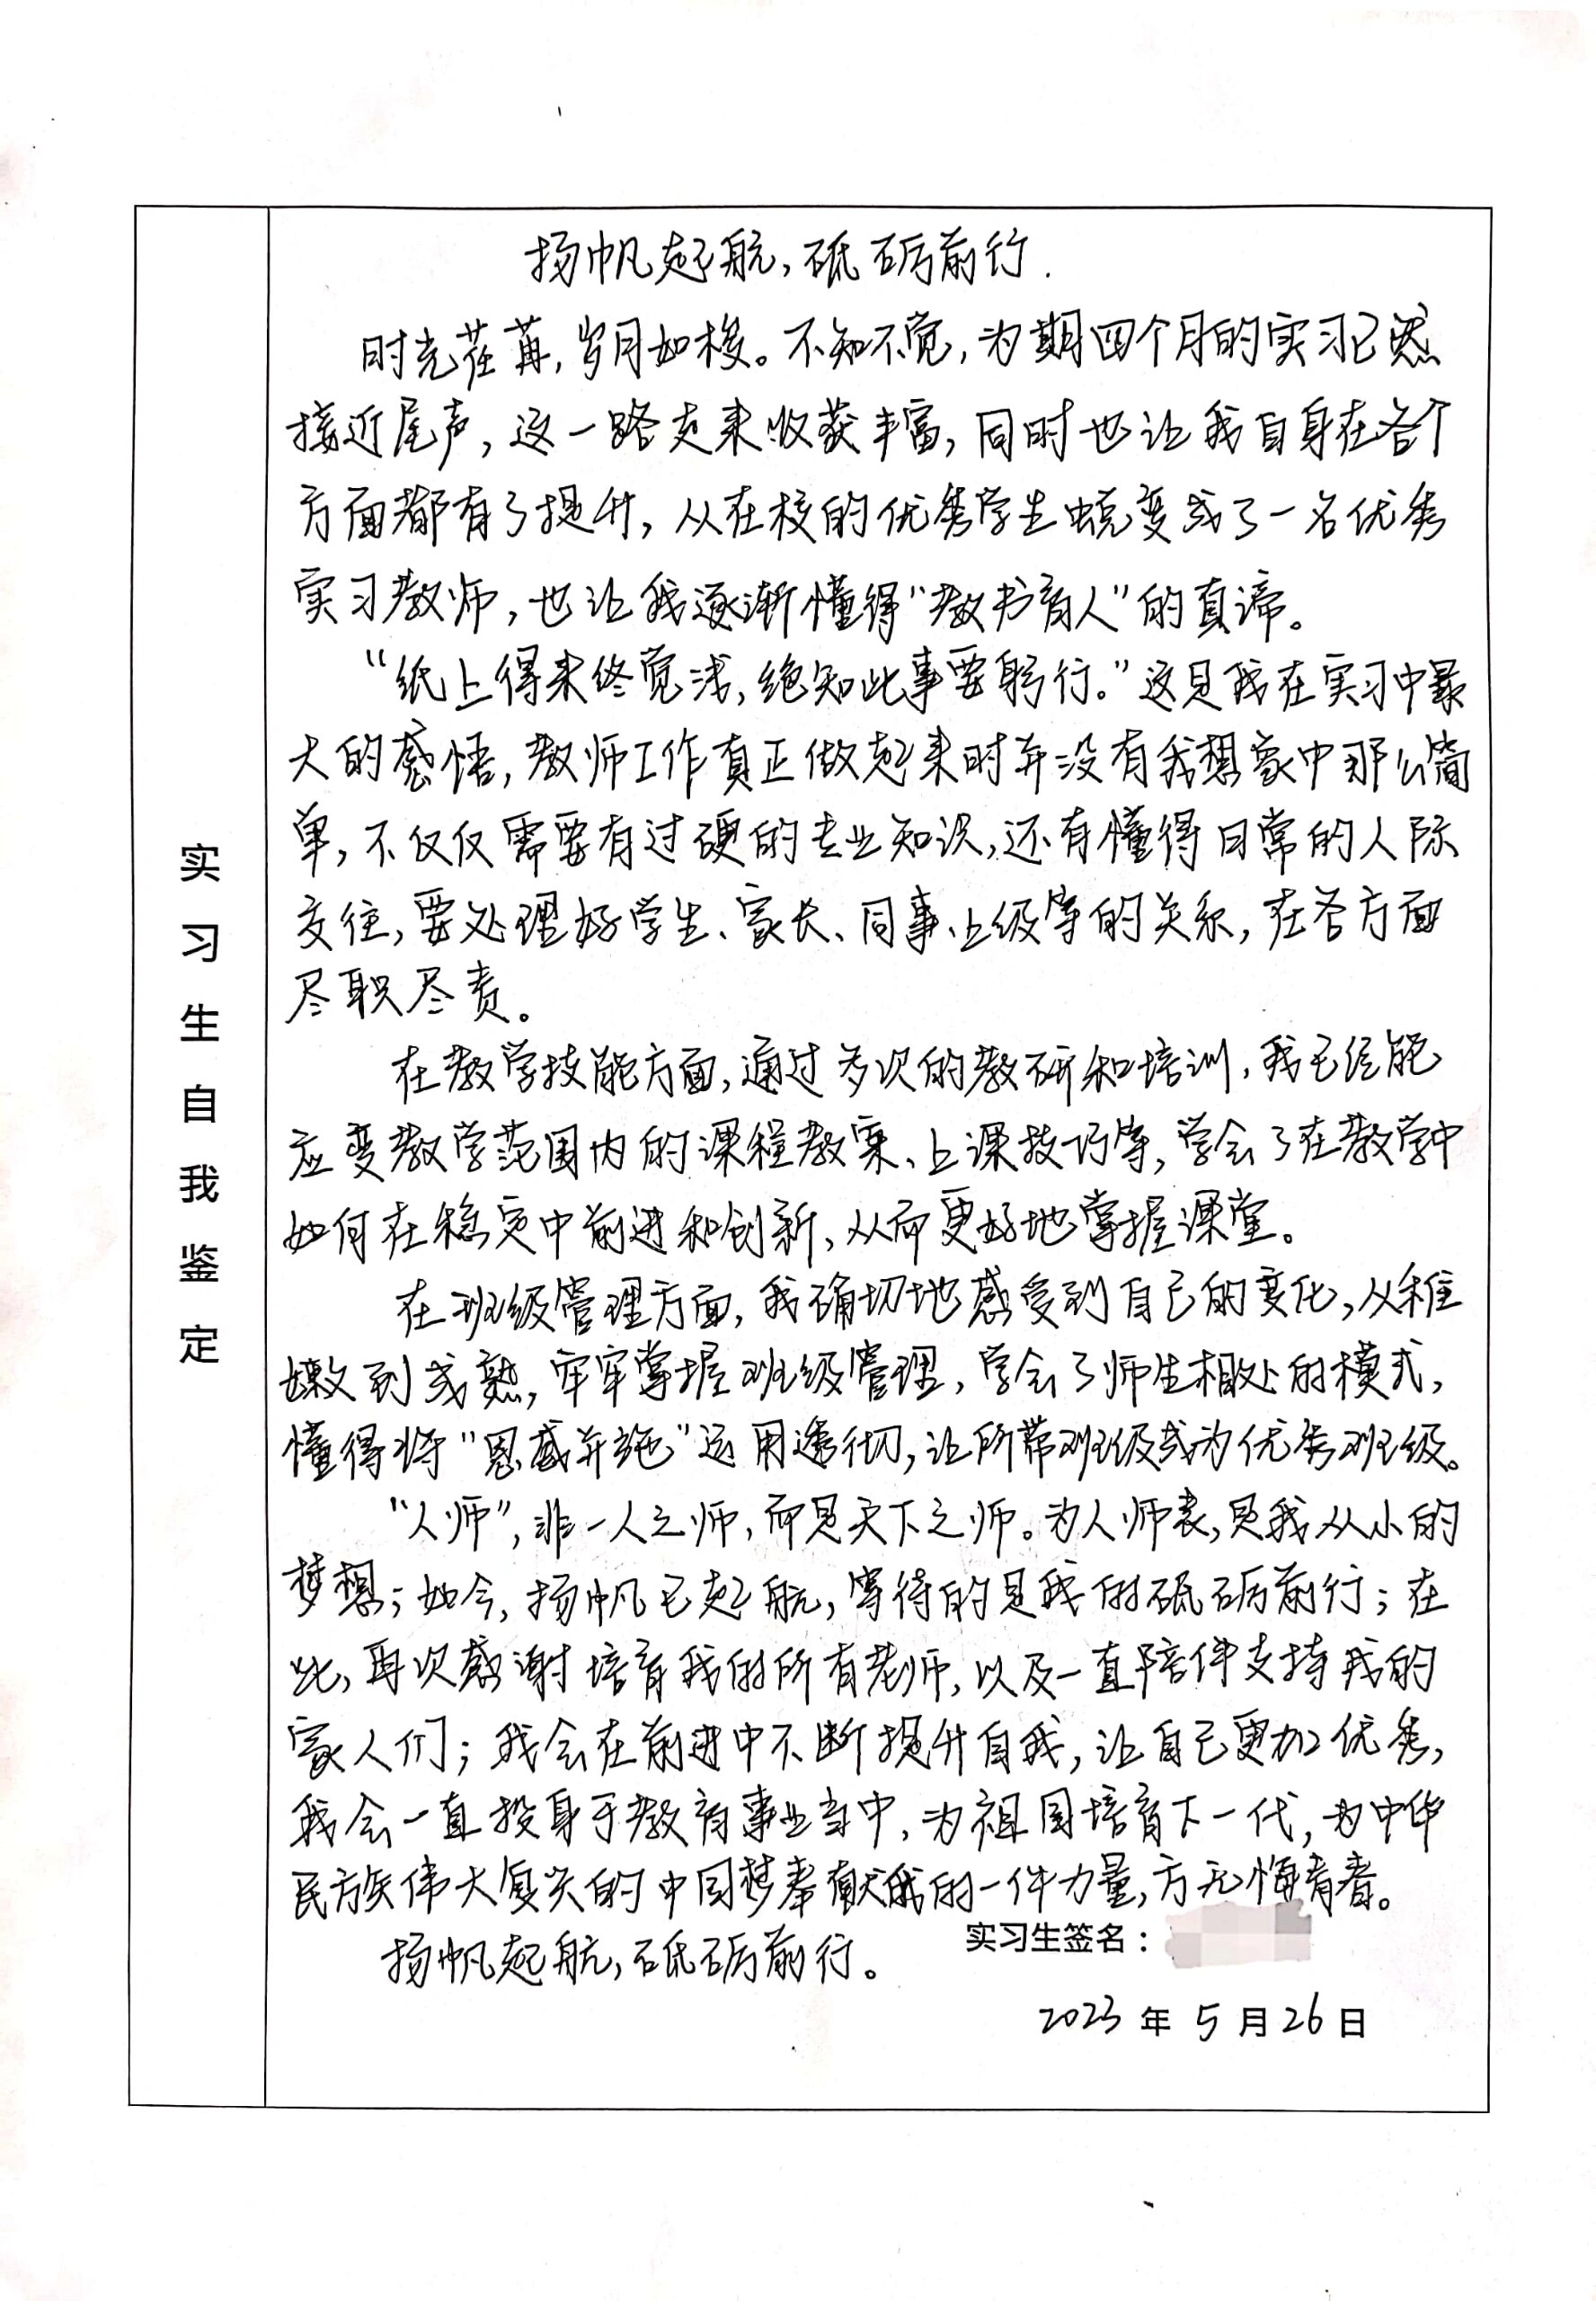 实习生自我鉴定
扬帆起航,砥砺前行.
时光荏苒,岁月如梭。不知不觉,为期四个月的实习已然
接近尾声,这一路走来收获丰富,同时也让我自身在各个
方面都有了提升,从在校的优秀学生蜕变成了一名优秀
实习教师,也让我逐渐懂得“教书育人”的真谛。
“纸上得来终觉浅,绝知此事要躬行。”这是我在实习中最
大的感悟,教师工作真正做起来时并没有我想象中那么简
单,不仅仅需要有过硬的专业知识,还有懂得日常的人际
交往,要处理好学生、家长、同事、上级等的关系,在各方面
尽职尽责。
在教学技能方面,通过多次的教研和培训,我已经能
应变教学范围内的课程教案、上课技巧等,学会了在教学中
如何在稳定中前进和创新,从而更好地掌握课堂。
在班级管理方面,我确切地感受到自己的变化,从稚
嫩到成熟,牢牢掌握班级管理,学会了师生相处的模式,
懂得将“恩威并施”运用透彻,让所带班级成为优秀班级。
“人师”,非一人之师,而是天下之师。为人师表,是我从小的
梦想;如今,扬帆已起航,等待的是我的砥砺前行;在
此,再次感谢培育我的所有老师,以及一直陪伴支持我的
家人们;我会在前进中不断提升自我,让自己更加优秀,
我会一直投身于教育事业当中,为祖国培育下一代,为中华
民族伟大复兴的中国梦奉献我的一份力量,方无悔青春。
扬帆起航,砥砺前行。
实习生签名:
2023年5月26日